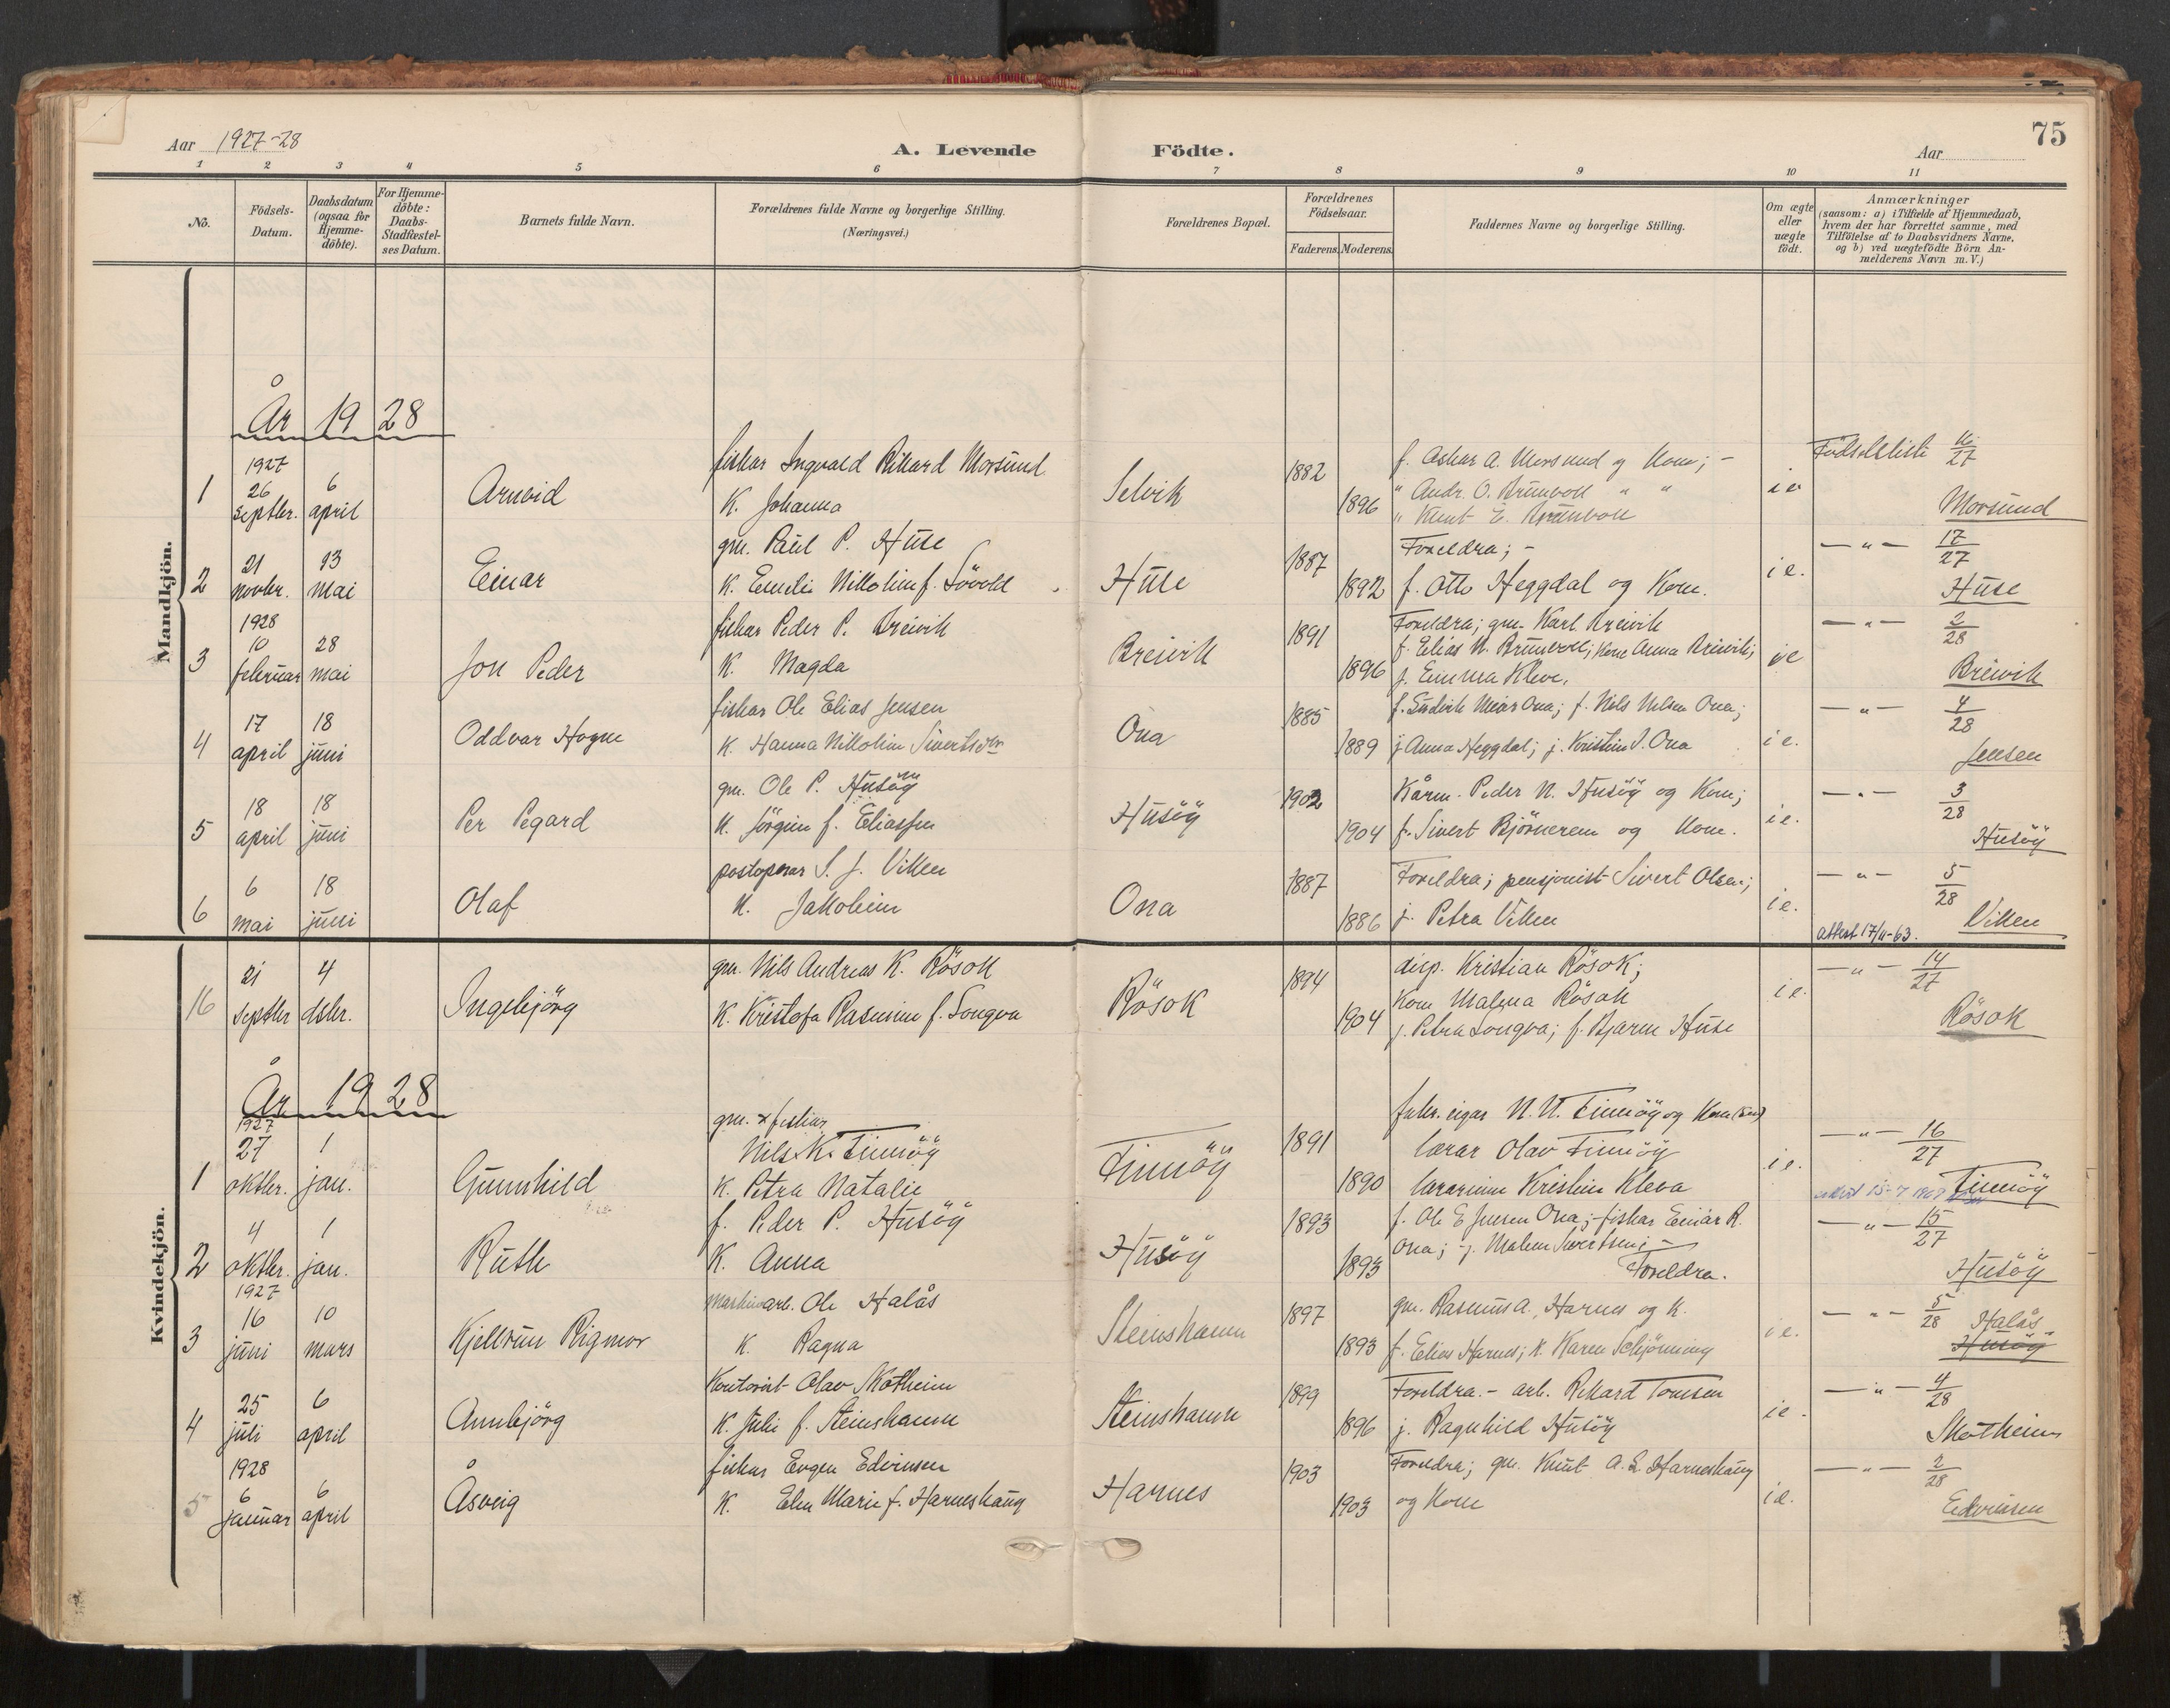 75
Aar 1927-28
A. Levende Födte.
Aar
1 2 3 4 5 6 7 8 9 10 11
No.
Födsels-Datum.
Daabsdatum (ogsaa for Hjemme-döbte).
For Hjemme-döbte: Daabs-Stadfæstel-ses Datum.
Barnets fulde Navn.
Forældrenes fulde Navne og borgerlige Stilling. (Næringsvei.)
Forældrenes Bopæl.
Forældrenes Födselsaar.
Faderens. Moderens.
Faddernes Navne og borgerlige Stilling.
Om ægte eller uægte födt.
Anmærkninger (saasom: a) i Tilfælde af Hjemmedaab, hvem der har forrettet samme, med Tilföielse af to Daabsvidners Navne, og b) ved uægtefödte Börn An-melderens Navn m. V.)
Mandkjön.
År 1928
1 1927 26 septbr. 6 april Arnvid
fiskar Ingvald Rikard Morsund
K. Johanna
Selvik 1882 1896
f. Oskar A. Morsund og Kone; -
" Andr. O. Brunvoll " "
" Knut E. Brunvoll
ie Födselsliste 16/27 Morsund
2 21 novbr. 13 mai Einar
gm. Paul P. Huse
K. Emilie Nikoline f. Sövold
Huse 1887 1892
Foreldra; -
f. Otto Heggdal og Kone.
i e. — " — 17/27 Huse
3 1928 10 februar 28 mai Jon Peder
fiskar Peder P. Breivik
K. Magda
Breivik 1891 1896
Foreldra; gm. Karl Breivik
f. Elias N. Brunvoll; Kone Anna Breivik;
j. Emma Kleve.
ie — " — 2/28 Breivik
4 17 april 18 juni Oddvar Hogne
fiskar Ole Elias Jensen
K. Hanna Nikoline Sivertsdtr
Ona 1885 1889
f. Nils Nilsen Ona;
j Anna Heggdal; j. Kristine J. Ona
i e. — " — 4/28 Jensen
5 18 april 18 juni Per Pegard
gm. Ole P. Husöy
K. Jörgine f. Eliassen
Husöy 1902 1904
Kårm. Peder N. Husöy og Kone;
f. Sivert Björnerem og Kone.
i e. — " — 3/28 Husöy
6 6 mai 18 juni Olaf
postopnar S. J. Viken
K. Jakobine
Ona 1887 1886
Foreldra; pensjonist Sivert Olsen;
j. Petra Viken
i e. — " — 5/28
attest 17/11-63. Viken
Kvindekjön.
16 21 septbr 4 dsbr. Ingebjörg
gm. Nils Andreas K. Rösok
K. Kristofa Rasmine f. Longva
Rösok 1894 1904
disp. Kristian Rösok;
Kone Malena Rösok
j. Petra Longva; f. Bjarne Huse
i e. — " — 14/27 Rösok
År 1928
1 1927 27 oktbr. 1 jan. Gunnhild
gm. & fiskar
Nils K. Finnöy
K. Petra Natalie
Finnöy 1891 1890
fabr. eigar N. N. Finnöy og Kone
lærar Olav Finnöy
lærarinne Kristine Kleva
i e. — " — 16/27 Finnöy
2 4 oktbr. 1 jan. Ruth
f. Peder P. Husöy
K. Anna
Husöy 1893 1893
f. Ole E Jensen Ona; - fiskar Einar R.
Ona; - j. Malene Sivertsen; -
Foreldra.
— " — 15/27 Husöy
3 1927 16 juni 10 mars Kjellrun Rigmor
maskinarb. Ole Halås
K. Ragna
Steinshamn 1897 1893
gm. Rasmus A. Harnes og K.
f. Elias Harnes; K. Karen Schjörning
i e. — " — 5/28 Halås
Husöy
4 25 juli 6 april Annbjörg
Kontorist Olav Skotheim
K. Julie f. Steinshamn
Steinshamn 1899 1896
Foreldra. - arb. Rikard Tomsen
j. Ragnhild Husöy
i e. — " — 4/28 Skotheim
5 1928 6 januar 6 april Åsveig
fiskar Eugen Edvinsen
K. Elen Marie f. Harneshaug
Harnes 1903 1903
Foreldra; gm. Knut A. L. Harneshaug
og Kone
i e. — " — 2/28 Edvinsen